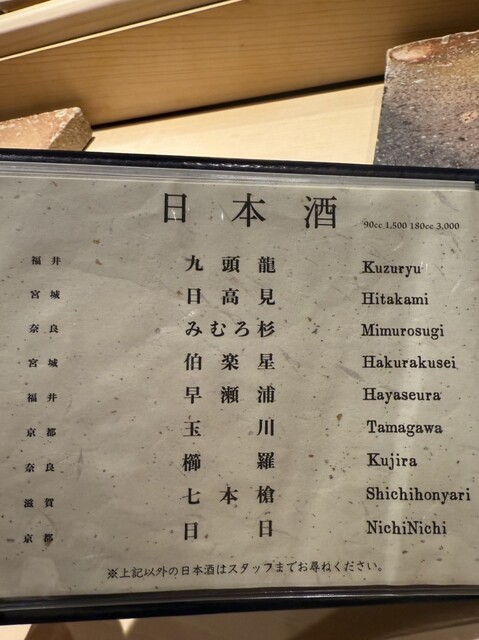 日本酒 90cc 1,500 180cc 3,000
福井 九頭龍 Kuzuryu
宮城 日高見 Hitakami
奈良 みむろ杉 Mimurosugi
宮城 伯楽星 Hakurakusei
福井 早瀬浦 Hayaseura
京都 玉川 Tamagawa
奈良 櫛羅 Kujira
滋賀 七本槍 Shichihonyari
京都 日日 NichiNichi
※上記以外の日本酒はスタッフまでお尋ねください。